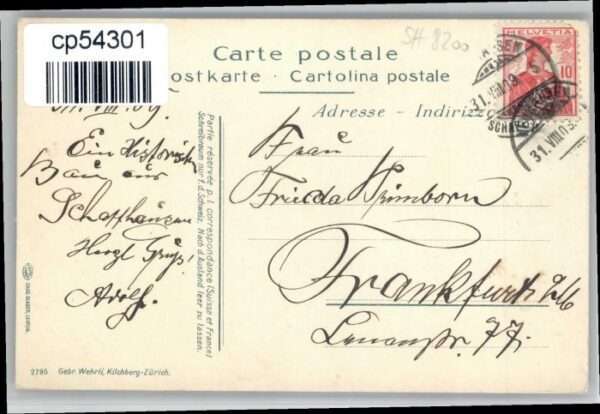 cp54301
SH 8200
Carte postale
Postkarte · Cartolina postale
Adresse - Indirizzo
HELVETIA
10
31.VIII.09
31.VIII.
SCHAFFHAUSEN
Ein Historisch
Bau aus
Schaffhausen
Herzl Gruß!
Adolf.
Partie réservée p. l. correspondance (Suisse et France)
Schreibraum nur f. d. Schweiz. Nach d. Ausland leer zu lassen.
Frau
Frieda
Frankfurt a/M
Lenaustr. 77.
2795 Gebr. Wehrli, Kilchberg-Zürich.